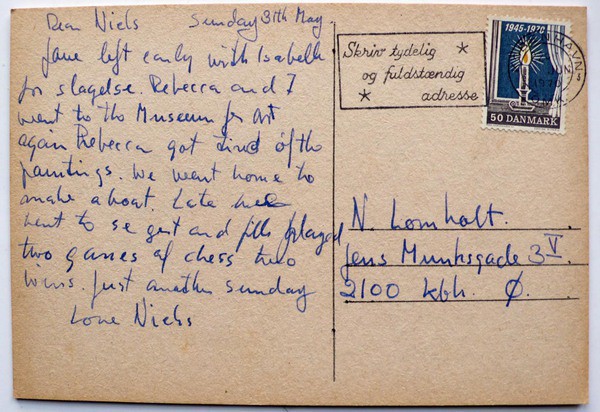 Dear Niels Sunday 31th May
Jane left early with Isabella
for slagelse. Rebecca and I
went to the Museum for art
again Rebecca got tired of the
paintings. We went home to
make a boat. Late we
went to se gert and played
two games of chess two
wins. Just another sunday
Love Niels
Skriv tydelig
og fuldstændig
adresse
1945-1970
50 DANMARK
HAVN
N. Lomholt.
Jens Munksgade 3 V.
2100 kbh. Ø.